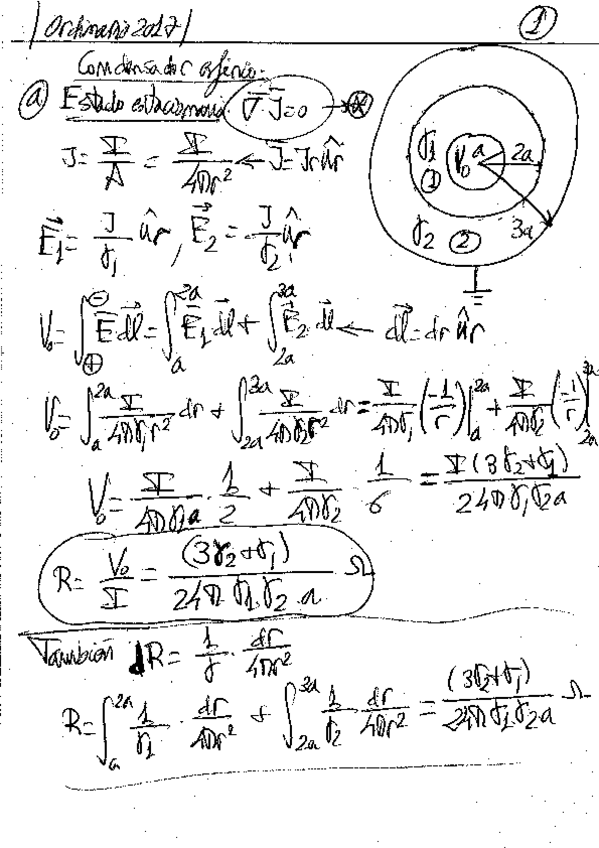 Ordinario 2017
①
Condensador esférico.
ⓐ Estado estacionario. ∇·J⃗=0 → ⊛
J = I/A = I/(4πr²) ← J⃗ = Jr ûr
E⃗₁ = J/γ₁ ûr, E⃗₂ = J/γ₂ ûr
γ₁ ① V₀ a 2a
γ₂ ② 3a
V₀ = ∫_⊕^⊖ E⃗ dl⃗ = ∫_a^2a E⃗₁ dl⃗ + ∫_2a^3a E⃗₂ dl⃗ ← dl⃗ = dr ûr
V₀ = ∫_a^2a I/(4πγ₁r²) dr + ∫_2a^3a I/(4πγ₂r²) dr = I/(4πγ₁) (-1/r)|_a^2a + I/(4πγ₂) (-1/r)|_2a^3a
V₀ = I/(4πγ₁a) · 1/2 + I/(4πγ₂) · 1/6 = I(3γ₂+γ₁)/(24πγ₁γ₂a)
R = V₀/I = (3γ₂+γ₁)/(24π γ₁.γ₂.a) Ω
También dR = 1/γ · dr/(4πr²)
R = ∫_a^2a 1/γ₁ · dr/(4πr²) + ∫_2a^3a 1/γ₂ · dr/(4πr²) = (3γ₂+γ₁)/(24πγ₁γ₂a) Ω